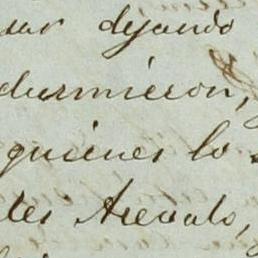 sar dejando
durmieron,
quienes lo
tes Arevalo,